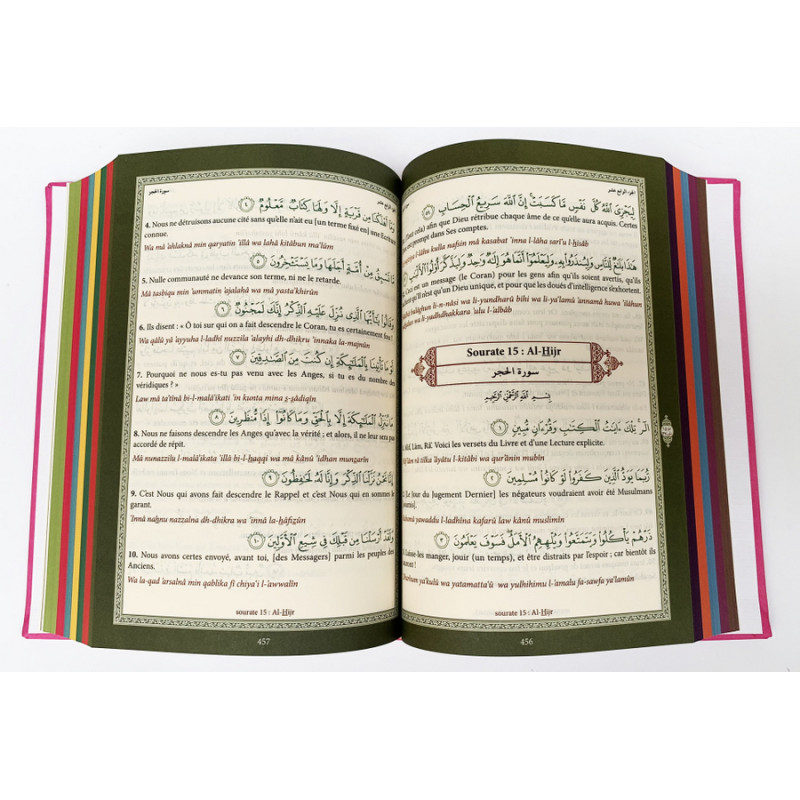 الجزء الرابع عشر
لِيَجْزِيَ ٱللَّهُ كُلَّ نَفْسٍ مَّا كَسَبَتْ إِنَّ ٱللَّهَ سَرِيعُ ٱلْحِسَابِ ٥١
cela) afin que Dieu rétribue chaque âme de ce qu'elle aura acquis. Certes
prompt dans Ses comptes.
llâhu kulla nafsin mâ kasabat 'inna l-lâha sarî'u l-hisâb
هَٰذَا بَلَٰغٌ لِّلنَّاسِ وَلِيُنذَرُوا۟ بِهِۦ وَلِيَعْلَمُوٓا۟ أَنَّمَا هُوَ إِلَٰهٌ وَٰحِدٌ وَلِيَذَّكَّرَ أُو۟لُوا۟ ٱلْأَلْبَٰبِ
Ceci est un message (le Coran) pour les gens afin qu'ils soient avertis, qu'ils
qu'Il n'est qu'un Dieu unique, et pour que les doués d'intelligence s'exhortent.
balâghun li-n-nâsi wa li-yundharû bihi wa li-ya'lamû 'annamâ huwa 'ilâhun
wa li-yadhdhakkara 'ulu l-'albâb
Sourate 15 : Al-Hijr
سورة الحجر
بِسْمِ ٱللَّهِ ٱلرَّحْمَٰنِ ٱلرَّحِيمِ
الٓر تِلْكَ ءَايَٰتُ ٱلْكِتَٰبِ وَقُرْءَانٍ مُّبِينٍ ١
Lâm, Râ. Voici les versets du Livre et d'une Lecture explicite.
lâm râ tilka 'âyâtu l-kitâbi wa qur'ânin mubîn
رُّبَمَا يَوَدُّ ٱلَّذِينَ كَفَرُوا۟ لَوْ كَانُوا۟ مُسْلِمِينَ ٢
Le Jour du Jugement Dernier] les négateurs voudraient avoir été Musulmans
yawaddu l-ladhîna kafarû law kânû muslimîn
ذَرْهُمْ يَأْكُلُوا۟ وَيَتَمَتَّعُوا۟ وَيُلْهِهِمُ ٱلْأَمَلُ فَسَوْفَ يَعْلَمُونَ ٣
Laisse-les manger, jouir (un temps), et être distraits par l'espoir ; car bientôt ils
ya'kulû wa yatamatta'û wa yulhihimu l-'amalu fa-sawfa ya'lamûn
sourate 15 : Al-Hijr
456
سورة الحجر
وَمَآ أَهْلَكْنَا مِن قَرْيَةٍ إِلَّا وَلَهَا كِتَابٌ مَّعْلُومٌ ٤
4. Nous ne détruisons aucune cité sans qu'elle n'ait eu [un terme fixé en] une Écriture
connue.
Wa mâ 'ahlaknâ min qaryatin 'illâ wa lahâ kitâbun ma'lûm
مَّا تَسْبِقُ مِنْ أُمَّةٍ أَجَلَهَا وَمَا يَسْتَـْٔخِرُونَ ٥
5. Nulle communauté ne devance son terme, ni ne le retarde.
Mâ tasbiqu min 'ummatin 'ajalahâ wa mâ yasta'khirûn
وَقَالُوا۟ يَٰٓأَيُّهَا ٱلَّذِى نُزِّلَ عَلَيْهِ ٱلذِّكْرُ إِنَّكَ لَمَجْنُونٌ ٦
6. Ils disent : « Ô toi sur qui on a fait descendre le Coran, tu es certainement fou !
Wa qâlû yâ 'ayyuha l-ladhî nuzzila 'alayhi dh-dhikru 'innaka la-majnûn
لَّوْ مَا تَأْتِينَا بِٱلْمَلَٰٓئِكَةِ إِن كُنتَ مِنَ ٱلصَّٰدِقِينَ ٧
7. Pourquoi ne nous es-tu pas venu avec les Anges, si tu es du nombre des
véridiques ? »
Law mâ ta'tînâ bi-l-malâ'ikati 'in kunta mina ṣ-ṣâdiqîn
مَا نُنَزِّلُ ٱلْمَلَٰٓئِكَةَ إِلَّا بِٱلْحَقِّ وَمَا كَانُوٓا۟ إِذًا مُّنظَرِينَ ٨
8. Nous ne faisons descendre les Anges qu'avec la vérité ; et alors, il ne leur sera pas
accordé de répit.
Mâ nunazzilu l-malâ'ikata 'illâ bi-l-haqqi wa mâ kânû 'idhan munzarîn
إِنَّا نَحْنُ نَزَّلْنَا ٱلذِّكْرَ وَإِنَّا لَهُۥ لَحَٰفِظُونَ ٩
9. C'est Nous qui avons fait descendre le Rappel et c'est Nous qui en sommes le
garant.
'innâ nahnu nazzalna dh-dhikra wa 'innâ la-hâfizûn
وَلَقَدْ أَرْسَلْنَا مِن قَبْلِكَ فِى شِيَعِ ٱلْأَوَّلِينَ ١٠
10. Nous avons certes envoyé, avant toi, [des Messagers] parmi les peuples des
Anciens.
Wa la-qad 'arsalnâ min qablika fî chiya'i l-'awwalîn
sourate 15 : Al-Hijr
457